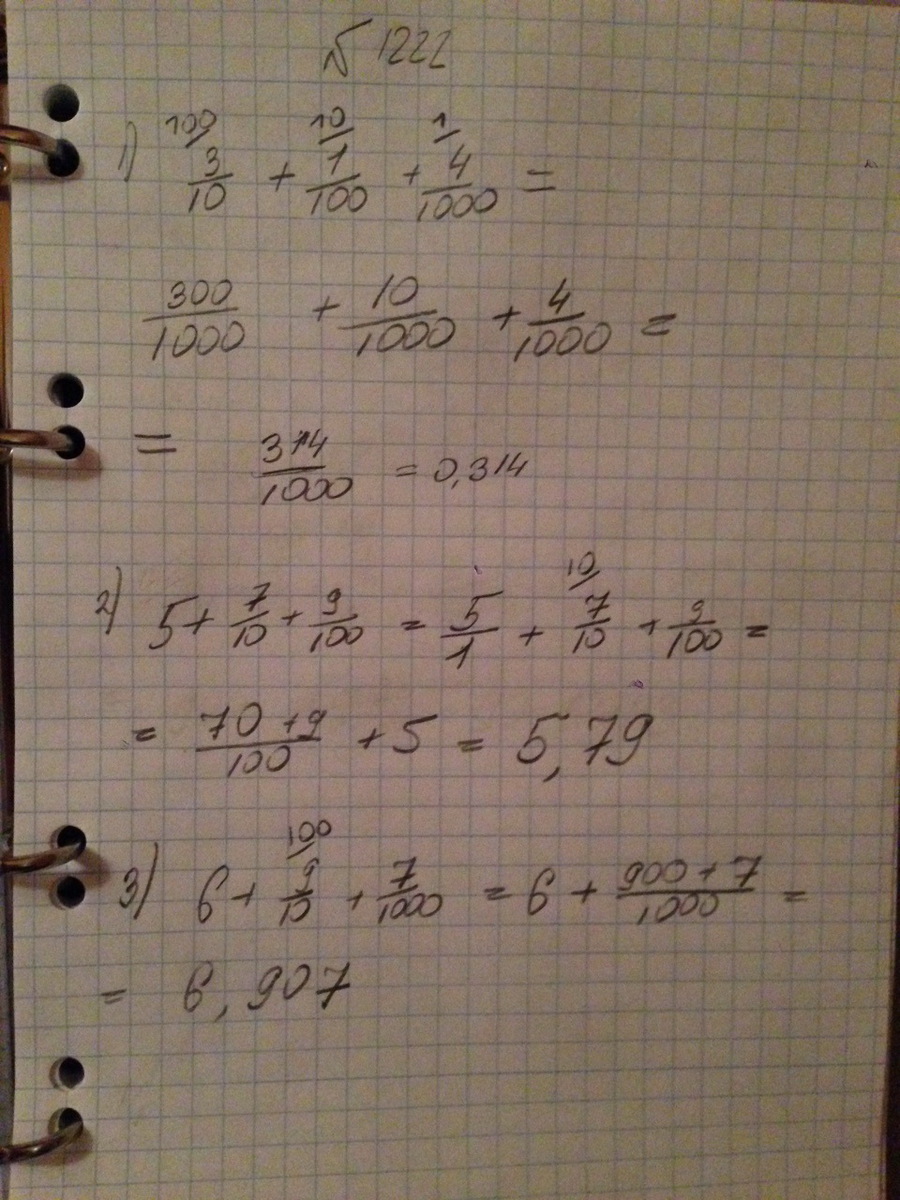 № 1222
100/ 10/ 1/
1) 3/10 + 1/100 + 4/1000 =
300/1000 + 10/1000 + 4/1000 =
= 314/1000 = 0,314
10/
2) 5 + 7/10 + 9/100 = 5/1 + 7/10 + 9/100 =
= 70 + 9/100 + 5 = 5,79
100/
3) 6 + 9/10 + 7/1000 = 6 + 900 + 7/1000 =
= 6,907